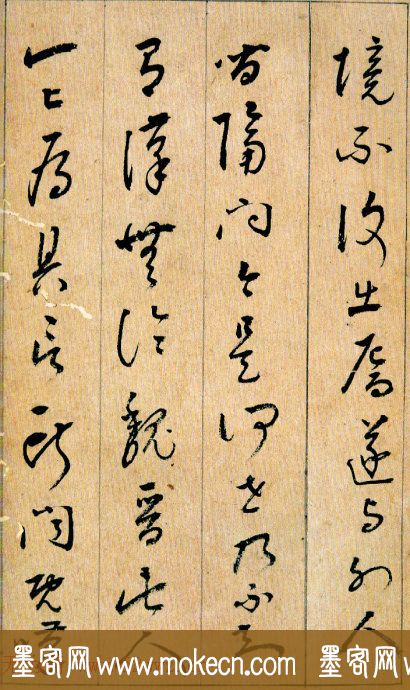 境不復出焉遂与外人
間隔問今是何世乃不知
有漢無論魏晉此人
一一為具言所聞
墨客网 www.mokecn.com 墨客网